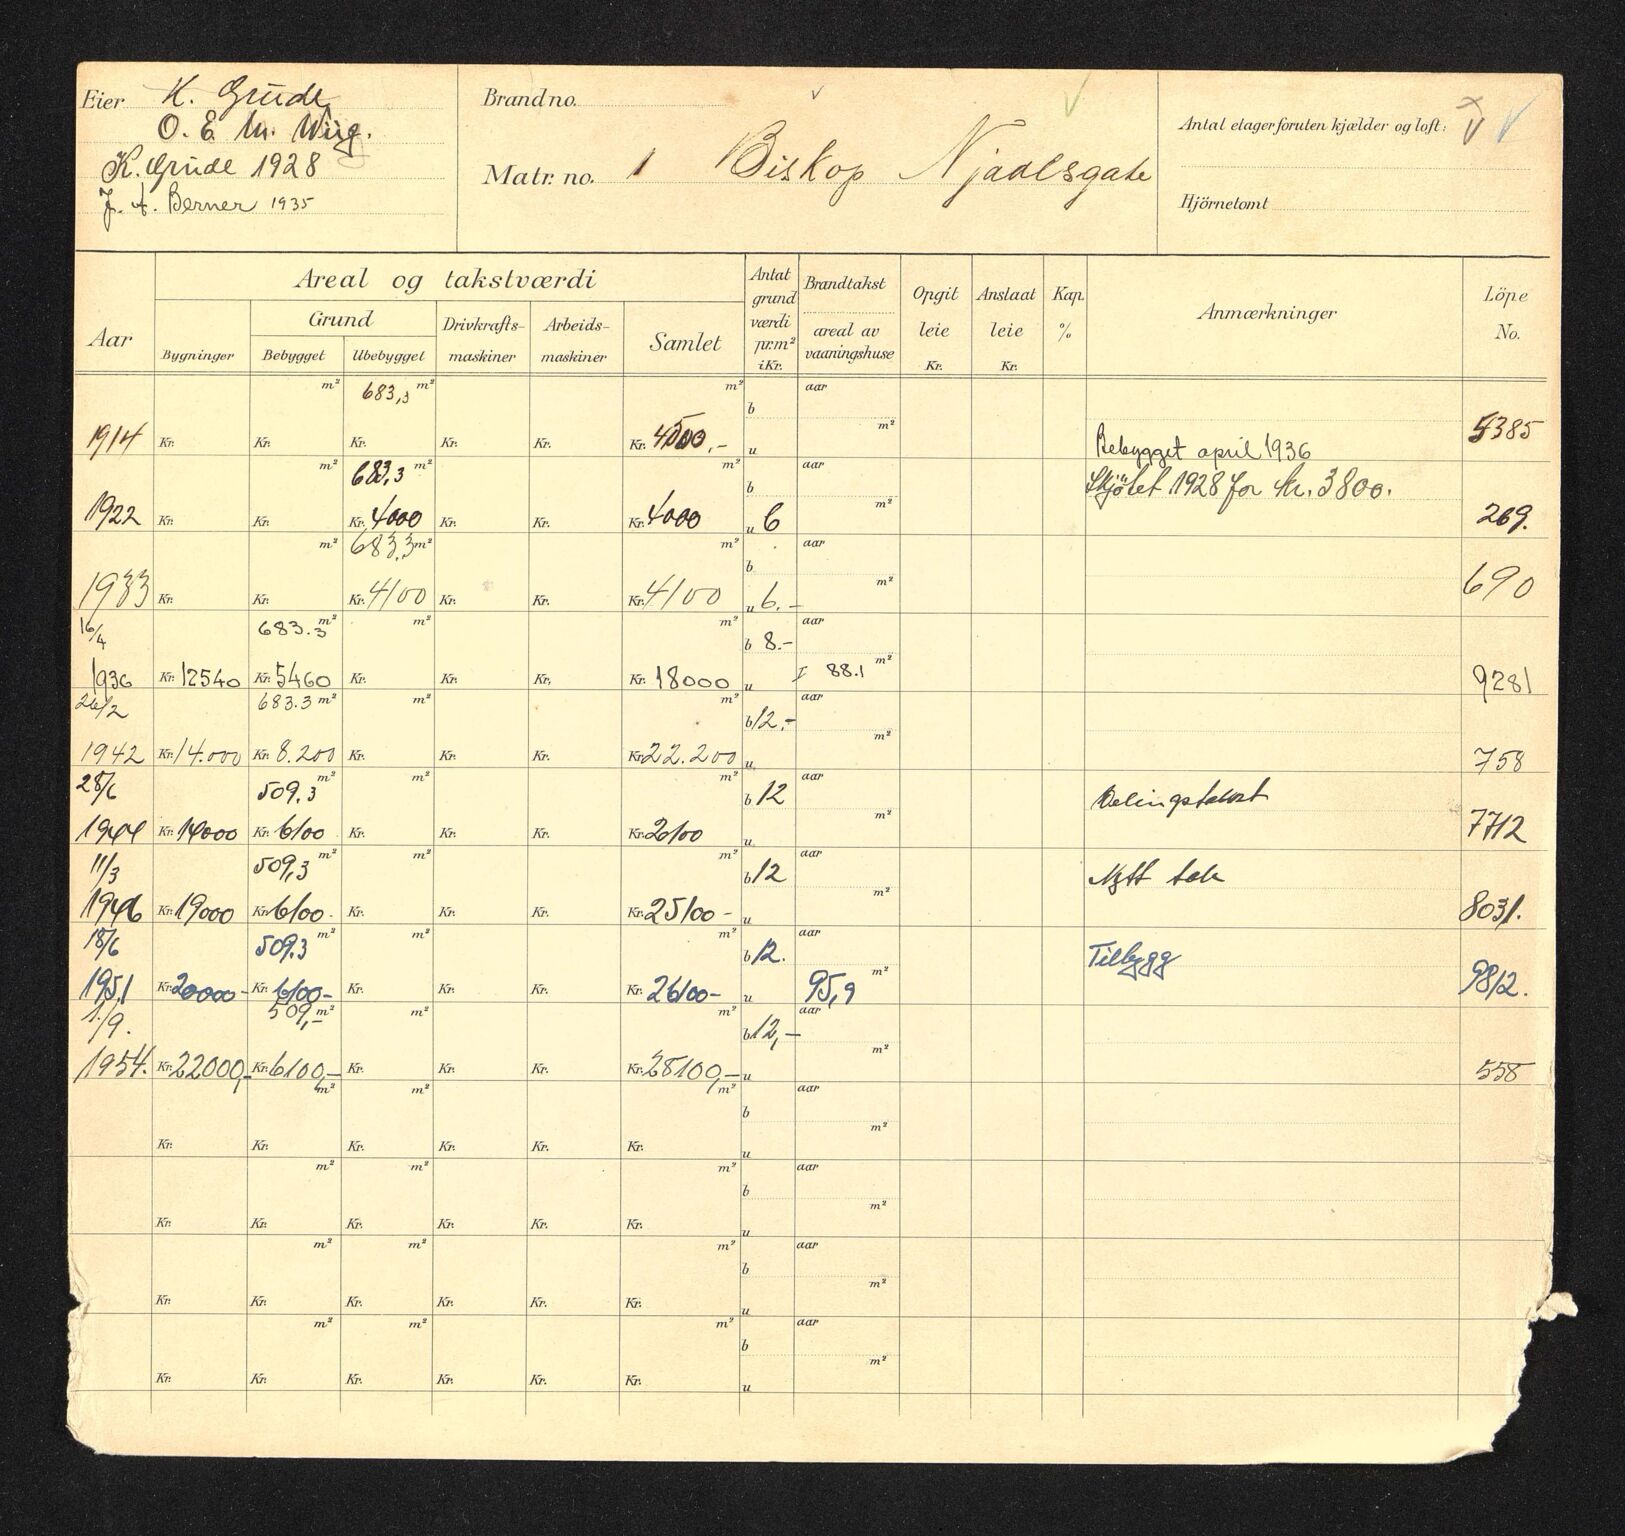 Eier K. Grude
O. E. M. Wiig.
K. Grude 1928
J. A. Berner 1935
Brand no.
Matr. no. 1 Biskop Njaalsgate
Antal etager foruten kjælder og loft:
Hjörnetomt
Aar
Areal og takstværdi
Bygninger
Grund
Bebygget Ubebygget
Drivkrafts-maskiner
Arbeids-maskiner
Samlet
Antat grund værdi pr. m² i Kr.
Brandtakst
areal av vaaningshuse
Opgit leie Kr.
Anslaat leie Kr.
Kap. %
Anmærkninger
Löpe No.
m² 683,3 m² m² b aar
1914 Kr. Kr. Kr. Kr. Kr. Kr. 4500.- u m² Bebygget april 1936 5385
m² 683,3 m² m² b aar Skjötet 1928 for kr. 3800.
1922 Kr. Kr. Kr. 4000 Kr. Kr. Kr. 4000 u 6 m² 269.
m² 683.3 m² m² b aar
1933 Kr. Kr. Kr. 4100 Kr. Kr. Kr. 4100 u 6.- m² 690
16/4 683.3 m² m² m² b 8.- aar
1936 Kr. 12540 Kr. 5460 Kr. Kr. Kr. Kr. 18000 u I 88.1 m² 9281
26/2 683.3 m² m² m² b 12.- aar
1942 Kr. 14.000 Kr. 8.200 Kr. Kr. Kr. Kr. 22.200 u m² 758
28/6 509,3 m² m² m² b 12 aar Delingstakst
1944 Kr. 14000 Kr. 6100 Kr. Kr. Kr. Kr. 20100 u m² 7712
11/3 509,3 m² m² m² b 12 aar Nytt tak
1946 Kr. 19000 Kr. 6100.- Kr. Kr. Kr. Kr. 25100- u m² 8031.
18/6 509.3 m² m² m² b 12. aar Tilbygg
1951 Kr. 20000- Kr. 6100- Kr. Kr. Kr. Kr. 26100- u 95,9 m² 9812.
1./9. 509,- m² m² m² b 12,- aar
1954. Kr. 22000,- Kr. 6100,- Kr. Kr. Kr. Kr. 28100,- u m² 558
m² m² m² b aar
Kr. Kr. Kr. Kr. Kr. Kr. u m²
m² m² m² b aar
Kr. Kr. Kr. Kr. Kr. Kr. u m²
m² m² m² b aar
Kr. Kr. Kr. Kr. Kr. Kr. u m²
m² m² m² b aar
Kr. Kr. Kr. Kr. Kr. Kr. u m²